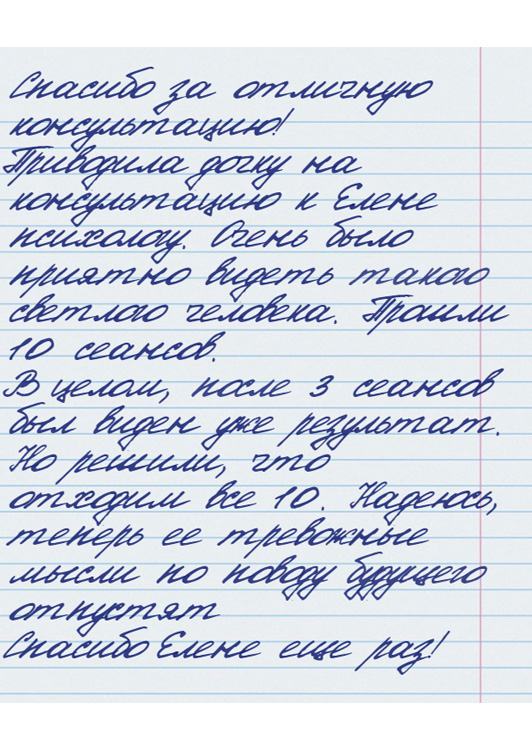 Спасибо за отличную
консультацию!
Приводила дочку на
консультацию к Елене
психологу. Очень было
приятно видеть такого
светлого человека. Прошли
10 сеансов.
В целом, после 3 сеансов
был виден уже результат.
Но решили, что
отходим все 10. Надеюсь,
теперь ее тревожные
мысли по поводу будущего
отпустят
Спасибо Елене еще раз!